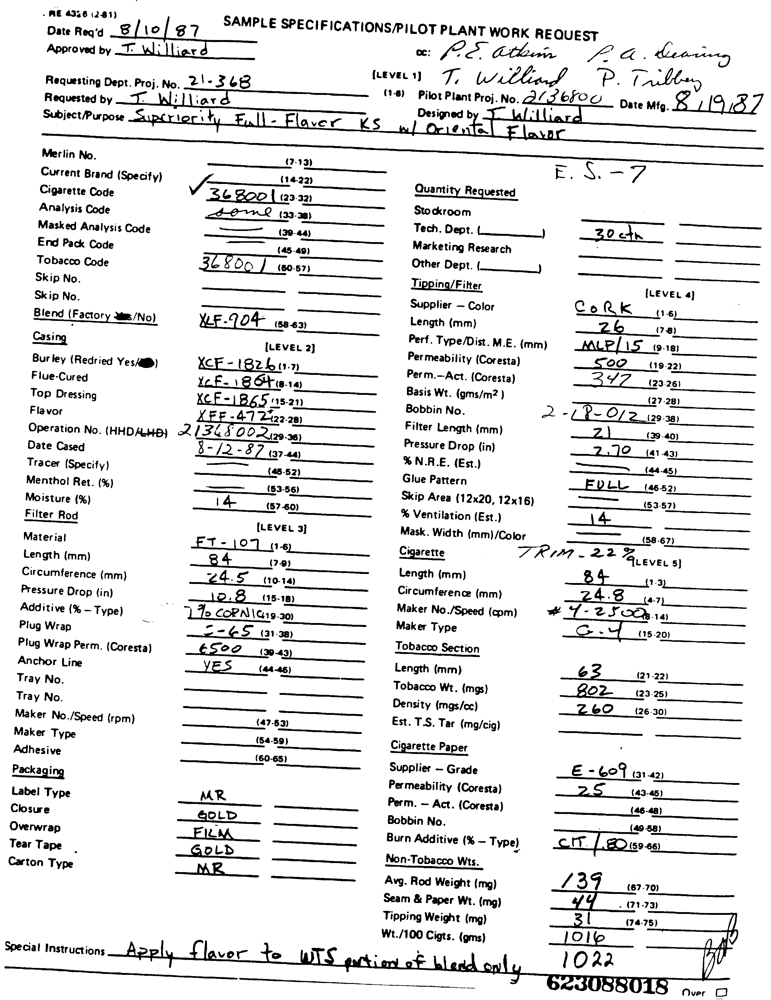 RE 4326 (2-81)
SAMPLE SPECIFICATIONS/PILOT PLANT WORK REQUEST
Date Req'd 8/10/87
Approved by T. Williard
cc: P.E. Atkins P.A. Dearing
[LEVEL 1] T. Williard P. Tribbey
Requesting Dept. Proj. No. 21-368
(1-6) Pilot Plant Proj. No. 2136800 Date Mfg. 8/19/87
Requested by T. Williard
Designed by T. Williard
Subject/Purpose Superiority Full-Flavor KS w/ Oriental Flavor
E. S. - 7
Merlin No. (7-13)
Current Brand (Specify) (14-22)
Cigarette Code ✓ 368001 (23-32)
Analysis Code some (33-38)
Masked Analysis Code — (39-44)
End Pack Code (45-49)
Tobacco Code 368001 (50-57)
Skip No.
Skip No.
Blend (Factory Yes/No) XLF-904 (58-63)
Casing [LEVEL 2]
Burley (Redried Yes/No) XCF-1826 (1-7)
Flue-Cured XCF-1864 (8-14)
Top Dressing XCF-1865 (15-21)
Flavor XFF-472 (22-28)
Operation No. (HHD/LHD) 21368002 (29-36)
Date Cased 8-12-87 (37-44)
Tracer (Specify) — (45-52)
Menthol Ret. (%) — (53-56)
Moisture (%) 14 (57-60)
Filter Rod [LEVEL 3]
Material FT-107 (1-6)
Length (mm) 84 (7-9)
Circumference (mm) 24.5 (10-14)
Pressure Drop (in) 10.8 (15-18)
Additive (% – Type) 7% COPNIC (19-30)
Plug Wrap C-65 (31-38)
Plug Wrap Perm. (Coresta) 6500 (39-43)
Anchor Line YES (44-46)
Tray No.
Tray No.
Maker No./Speed (rpm) (47-53)
Maker Type (54-59)
Adhesive (60-65)
Packaging
Label Type MR
Closure GOLD
Overwrap FILM
Tear Tape GOLD
Carton Type MR
Quantity Requested
Stockroom
Tech. Dept. ( ) 30 ctn
Marketing Research
Other Dept. ( )
Tipping/Filter [LEVEL 4]
Supplier – Color CORK (1-6)
Length (mm) 26 (7-8)
Perf. Type/Dist. M.E. (mm) MLP/15 (9-18)
Permeability (Coresta) 500 (19-22)
Perm.–Act. (Coresta) 347 (23-26)
Basis Wt. (gms/m²) (27-28)
Bobbin No. 2-18-012 (29-38)
Filter Length (mm) 21 (39-40)
Pressure Drop (in) 2.70 (41-43)
% N.R.E. (Est.) — (44-45)
Glue Pattern FULL (46-52)
Skip Area (12x20, 12x16) — (53-57)
% Ventilation (Est.) 14
Mask. Width (mm)/Color — (58-67)
Cigarette TRIM - 22% [LEVEL 5]
Length (mm) 84 (1-3)
Circumference (mm) 24.8 (4-7)
Maker No./Speed (cpm) #4-2500 (8-14)
Maker Type G-4 (15-20)
Tobacco Section
Length (mm) 63 (21-22)
Tobacco Wt. (mgs) 802 (23-25)
Density (mgs/cc) 260 (26-30)
Est. T.S. Tar (mg/cig)
Cigarette Paper
Supplier – Grade E-609 (31-42)
Permeability (Coresta) 25 (43-45)
Perm. – Act. (Coresta) (46-48)
Bobbin No. (49-58)
Burn Additive (% – Type) CIT / .80 (59-66)
Non-Tobacco Wts.
Avg. Rod Weight (mg) 139 (67-70)
Seam & Paper Wt. (mg) 44 (71-73)
Tipping Weight (mg) 31 (74-75)
Wt./100 Cigts. (gms) 1016
1022
Special Instructions Apply flavor to WTS portion of blend only
623088018 Over